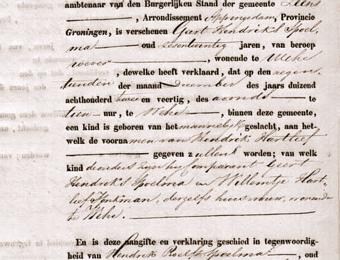 ambtenaar van den Burgerlijken Stand der gemeente Leens
, Arrondissement Appingedam, Provincie
Groningen, is verschenen Geert Hendriks Spoel,
ma oud zesentwintig jaren, van beroep
wever, wonende te Wehe
, dewelke heeft verklaard, dat op den negen
tienden der maand December des jaars duizend
achthonderd twee en veertig, des avonds te
tien uur, te Wehe, binnen deze gemeente,
een kind is geboren van het mannelijk geslacht, aan het-
welk de voornamen van Hendrik Hartlief
gegeven zullen worden; van welk
kind de ouders zijn hij comparant Geert
Hendriks Spoelma en Willemtje Hart-
lief Jonkman, deszelfs huisvrouw, wonende
te Wehe.
En is deze aangifte en verklaring geschied in tegenwoordig-
heid van Hendrik Roelfs Spoelma, oud